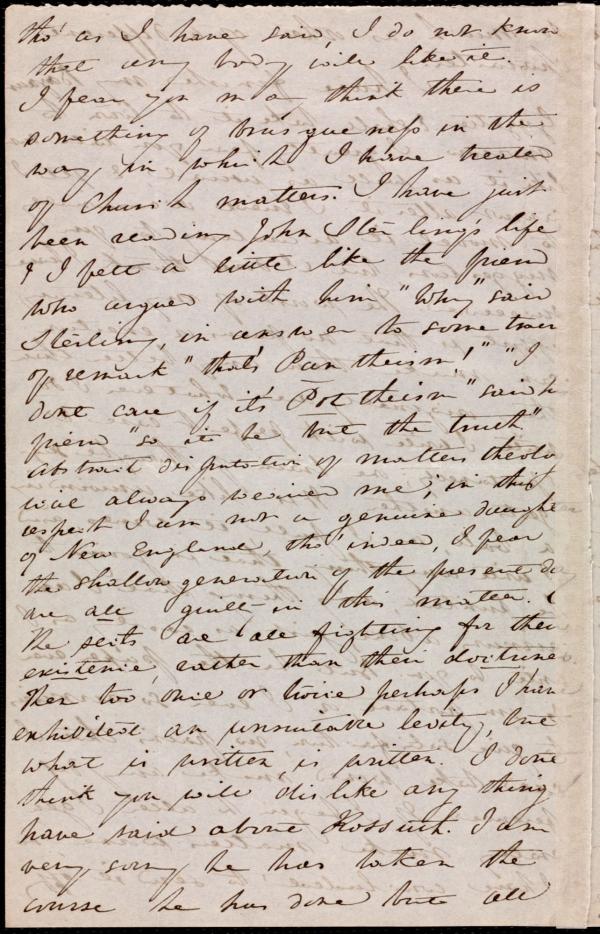 tho' as I have said, I do not know
that any body will like it.
I fear you may think there is
something of brusqueness in the
way in which I have treated
of Church matters. I have just
been reading John Sterling's life
& I felt a little like the friend
who argued with him "Why" said
Sterling, in answer to some train
of remark "that's Pantheism!" "I
dont care if it's Pot theism" said h
friend "so it be but the truth"
Abstract disputation of matters theolo
ical always wearied me; in this
respect I am not a genuine daughte
of New England, tho' indeed, I fear
the shallow generation of the present da
are all guilty in this matter.
The sects are all fighting for their
existence, rather than their doctrine
Then too once or twice perhaps I have
exhibited an unsuitable levity, but
what is written, is written. I dont
think you will dislike any thing
have said about Kossuth. I am
very sorry he has taken the
course he has done but all